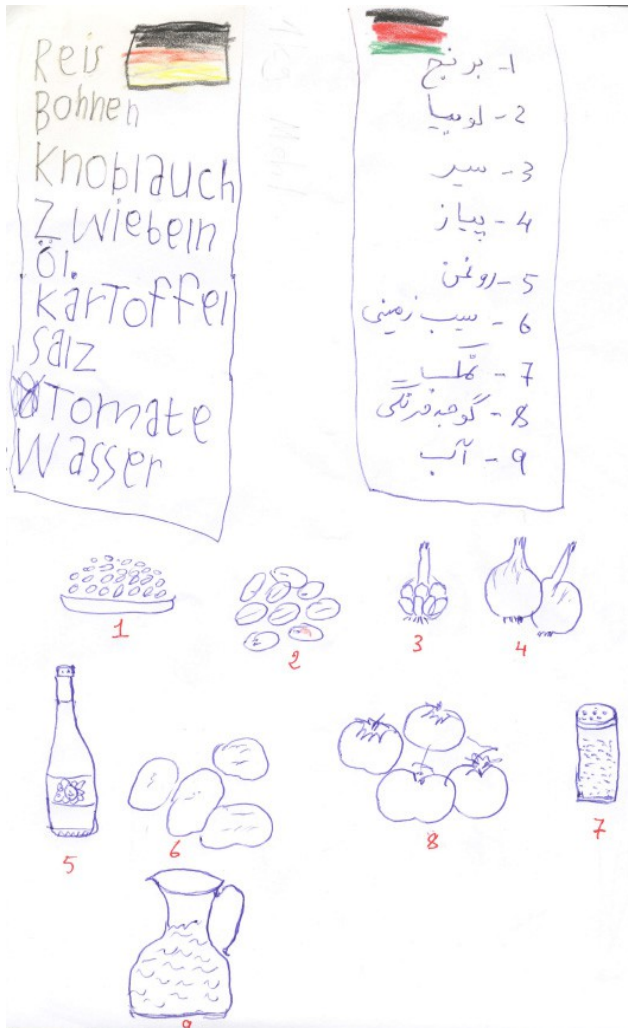 Reis
Bohnen
Knoblauch
Zwiebeln
Öl.
Kartoffel
Salz
Tomate
Wasser
1- برنج
2- لوبیا
3- سیر
4- پیاز
5- روغن
6- سیب زمینی
7- نمک
8- گوجه فرنگی
9- آب
1
2
3
4
5
6
8
7
9